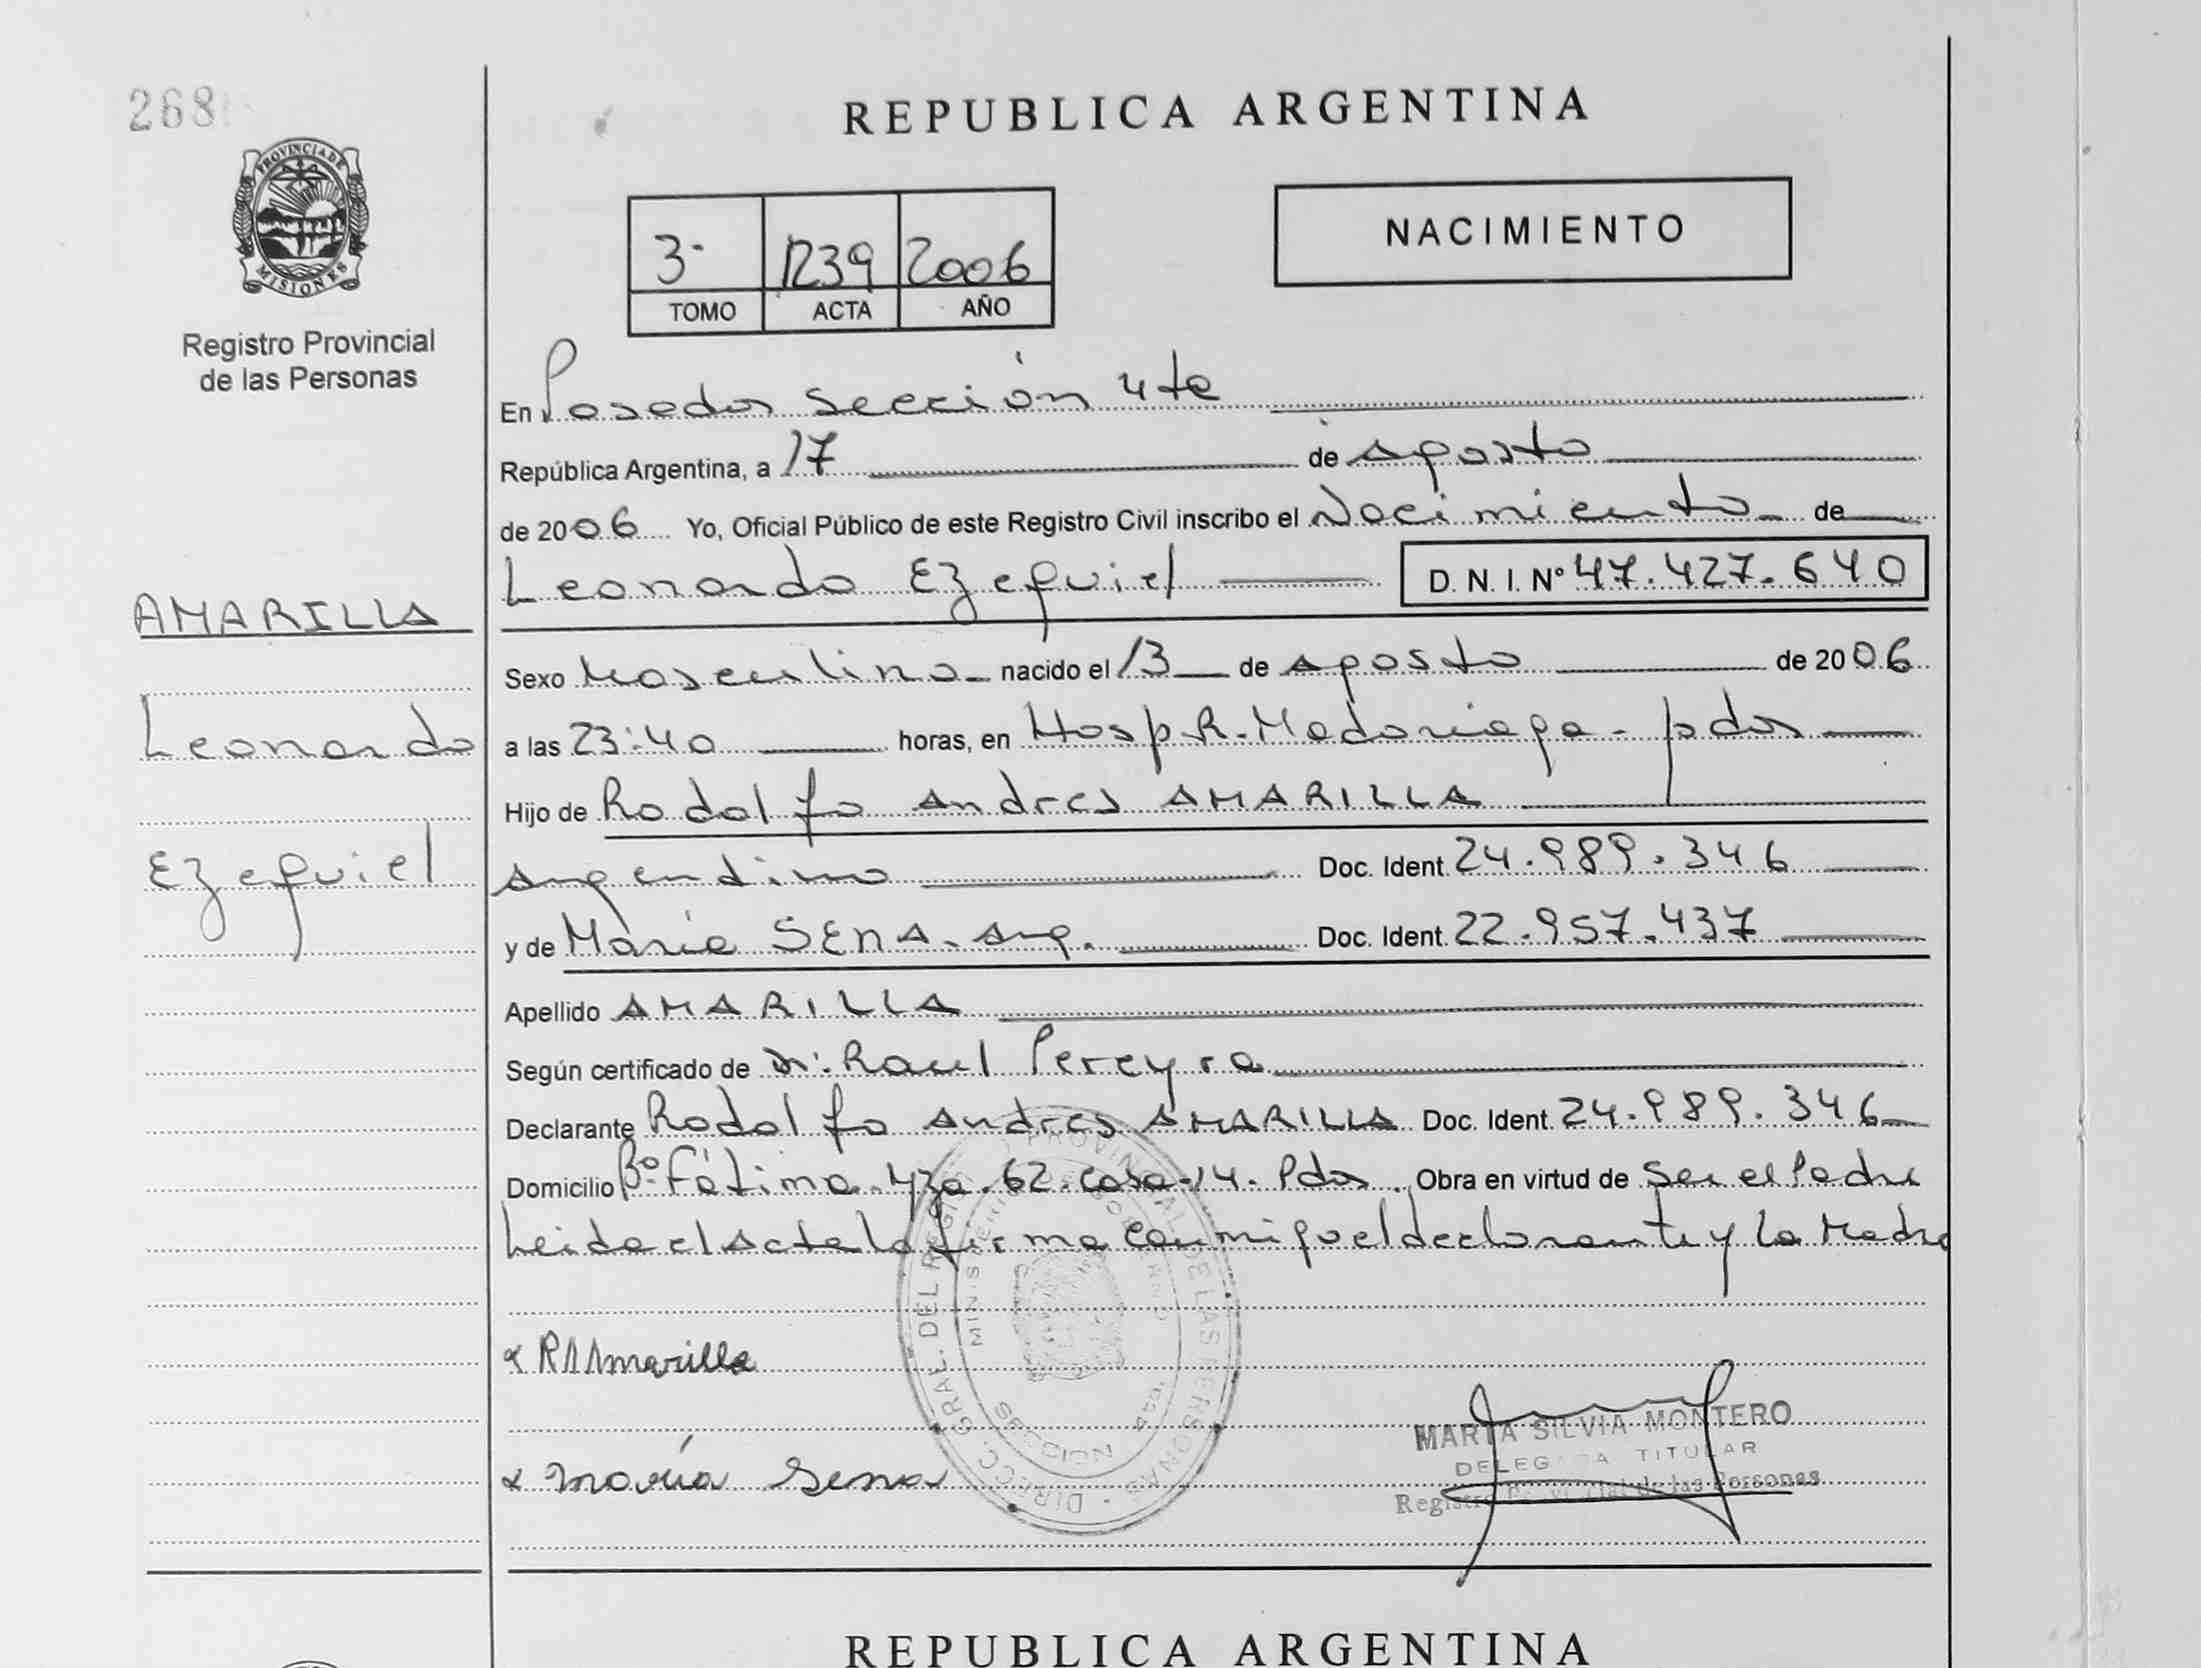 268
REPUBLICA ARGENTINA
PROVINCIA DE
MISIONES
Registro Provincial
de las Personas
3- 1239 2006
TOMO ACTA AÑO
NACIMIENTO
En Posadas Sección 4ta
República Argentina, a 17 de Agosto
de 2006 Yo, Oficial Público de este Registro Civil inscribo el Nacimiento de
Leonardo Ezequiel D. N. I. Nº 47.427.640
AMARILLA
Leonardo
Ezequiel
Sexo Masculino nacido el 13 de Agosto de 2006
a las 23:40 horas, en Hosp. R. Madariaga - pdas
Hijo de Rodolfo Andres AMARILLA
Argentino Doc. Ident. 24.989.346
y de María SENA. Arg. Doc. Ident. 22.957.437
Apellido AMARILLA
Según certificado de Dr. Raul Pereyra
Declarante Rodolfo Andres AMARILLA Doc. Ident. 24.989.346
Domicilio Bº Fátima. Mza. 62. casa. 14. Pdas. Obra en virtud de ser el Padre
Leida el Acta la firma conmigo el declarante y la Madre
R A Amarilla
María Sena
DIRECC. GRAL. DEL REGISTRO PROVINCIAL DE LAS PERSONAS
MARTA SILVIA MONTERO
DELEGADA TITULAR
Registro Provincial de las Personas
REPUBLICA ARGENTINA